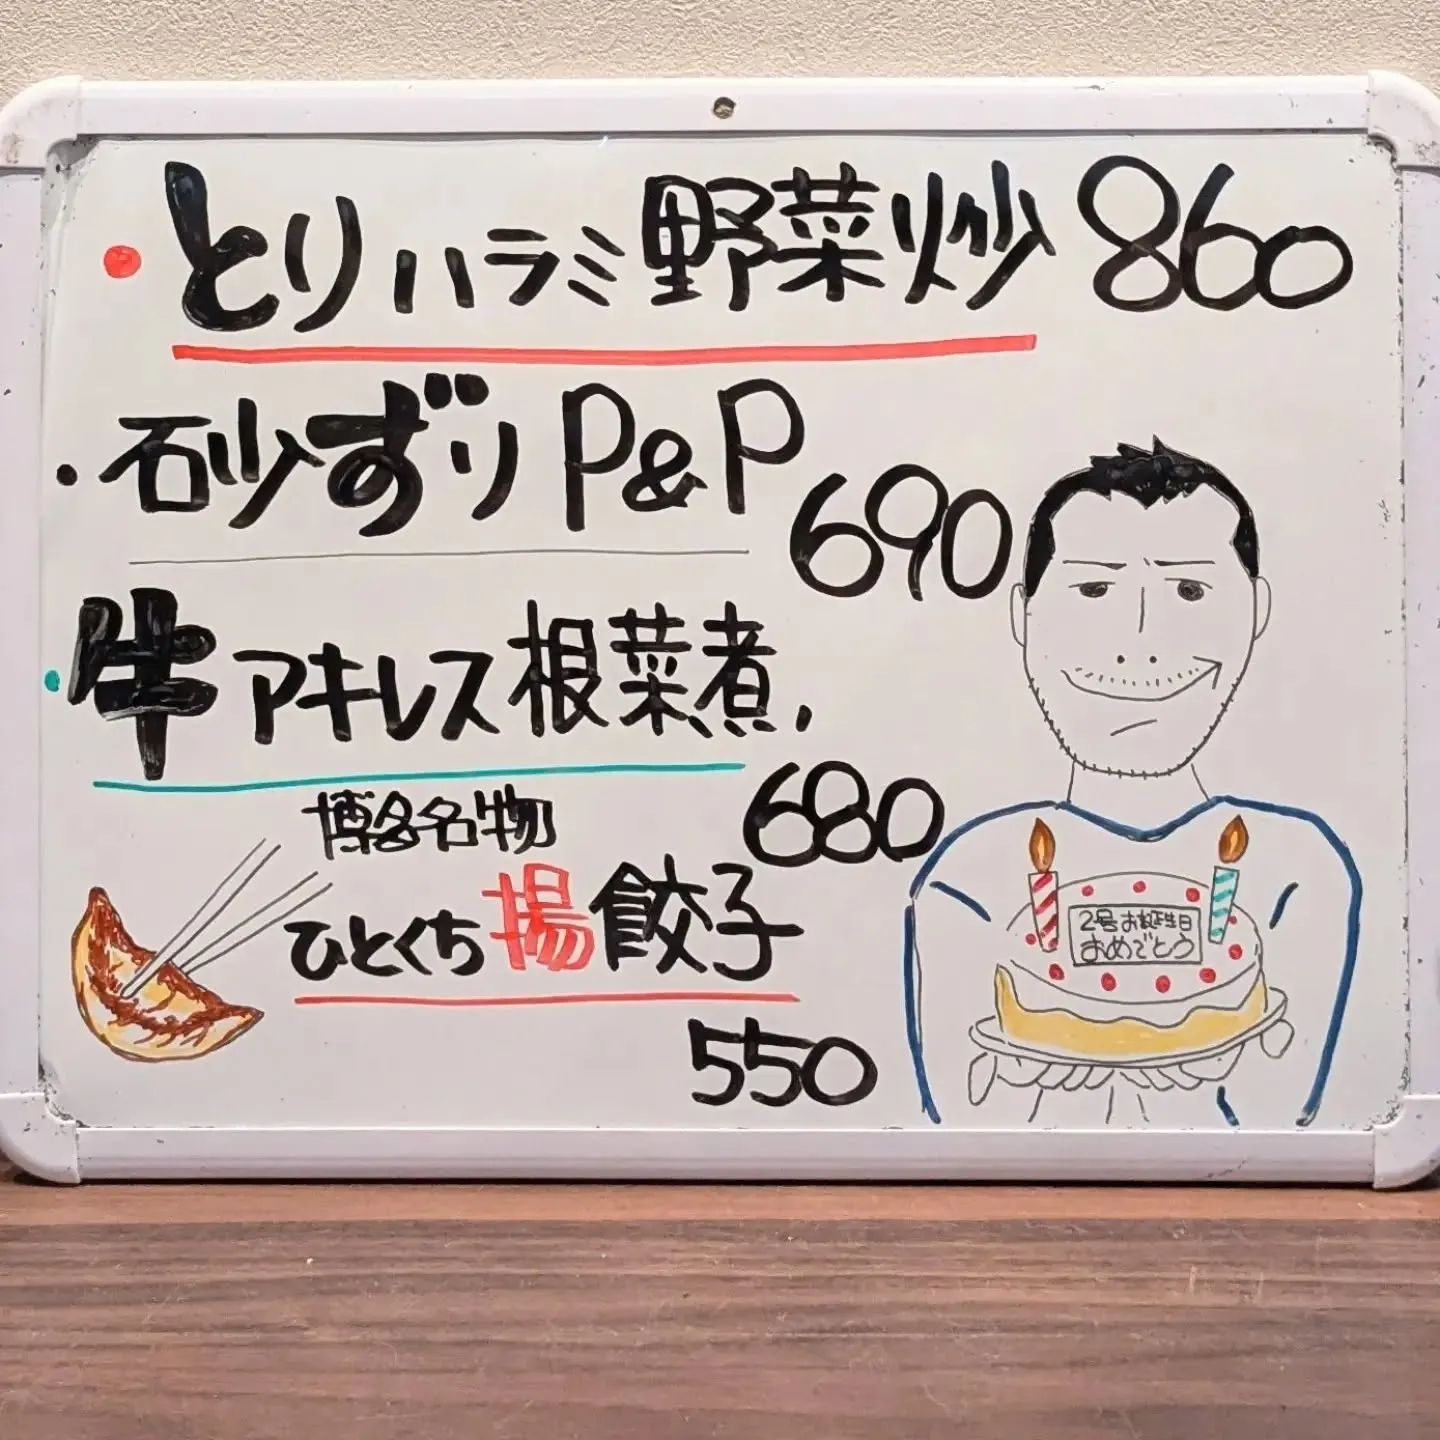 ・とりハラミ野菜炒 860
・砂ずりP&P
690
・牛アキレス根菜煮
680
博多名物
ひとくち揚餃子
550
2号お誕生日
おめでとう